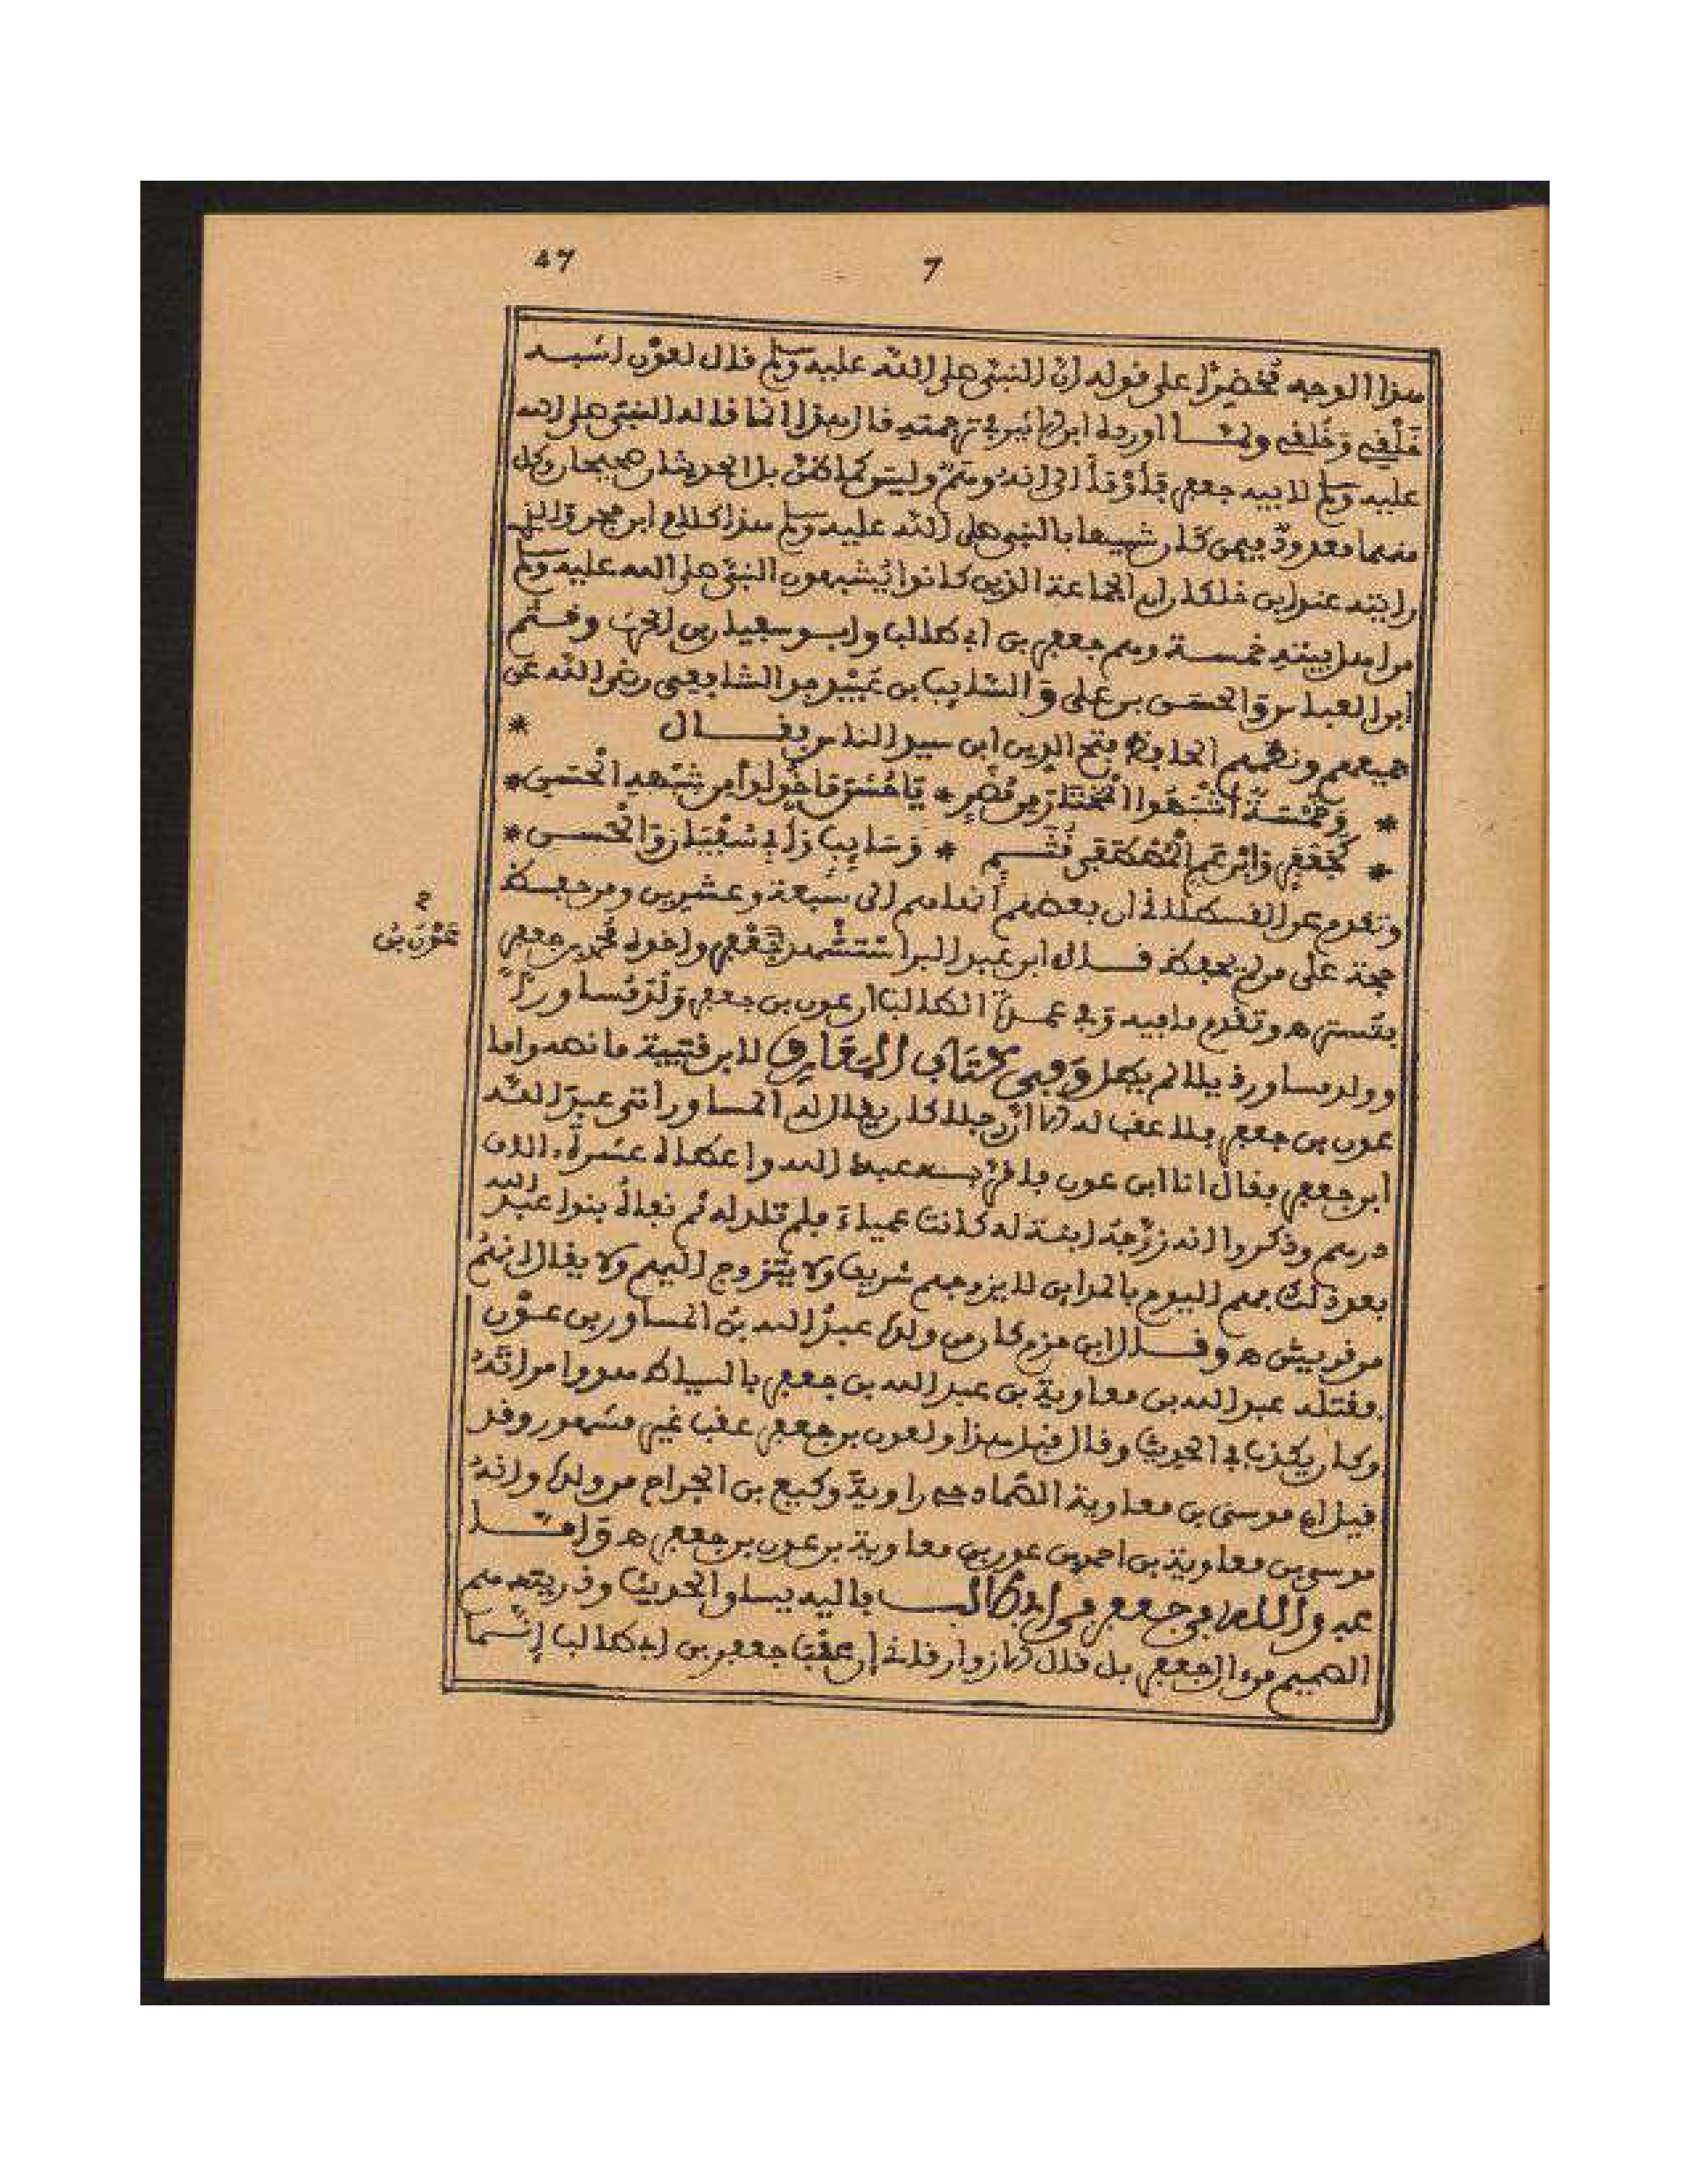 47
7
هذا الوجه مختصرا على قوله ان النبي صلى الله عليه وسلم قال لعون اشبه
خَلْقِي وَخُلُقِي ولما اورده ابن الاثير في ترجمته قال هذا انما قاله النبي صلى الله
عليه وسلم لابيه جعفر فأومأ الى انه وهم وليس كما ظن بل الحديثان صحيحان وكل
منهما معدود فيمن كان شبيها بالنبي صلى الله عليه وسلم هذا كلام ابن حجر والذي
رايته عند ابن خلكان ان الجماعة الذين كانوا يُشبهون النبي صلى الله عليه وسلم
من اهل بيته خمسة وهم جعفر بن ابي طالب وابو سفيان بن الحرث وقثم
ابن العباس والحسن بن على والسايب بن عبيد جد الشافعي رضي الله عن
جميعهم ونظمهم الحافظ فتح الدين ابن سيد الناس فقال *
* وَخَمْسَةٌ أَشْبَهُوا الْمُخْتَارَ مِن مُضَرٍ * يَا حُسْنَ مَا خُوِّلُوا مِن شِبْهِهِ الْحَسَنِ *
* كَجَعْفَرٍ وَابْنِ عَمِّ الْمُصْطَفَى قُثَمٍ * وَسَايِبٍ وَأَبِي سُفْيَانَ وَالْحَسَنِ *
وتقدم عن القسطلاني ان بعضهم أنهاهم الى سبعة وعشرين ومن حفظ
حجة على من لم يحفظ قال ابن عبد البر اسْتُشْهِد جَعْفَر واخوه محمد بن جعفر
عَوْن بْن
بتستر ه وتقدم ما فيه وفي عمدة الطالب ان عون بن جعفر وَلَدَ مُساورًا
وولد مساور ذيلا لم يطل وَفِي كِتَابِ الْمَعَارِفِ لابن قتيبة ما نصه واما
عون بن جعفر فلا عقب له الا أن رجلا كان يقال له المساور اتى عبد الله
ابن جعفر فقال انا ابن عون فاقر به عبد الله واعطاه عشرة الاف
درهم وذكروا انه زوّجه ابنة له كانت عمياء فلم تلد له ثم نفاه بنو عبد الله
بعد ذلك فهم اليوم بالمداين لا يزوجهم شريف ولا يتزوج اليهم ولا يقال انهم
من قريش ه وقال ابن حزم كان من ولده عبد الله بن المساور بن عون
فقتله عبد الله بن معاوية بن عبد الله بن جعفر بالسياط هو وامراته
وكان يكذب في الحديث وقال قبل هذا ولعون بن جعفر عقب غير مشهور وقد
قيل ان موسى بن معاوية الصمادحي راوية وكيع بن الجراح من ولده وانه
موسى بن معاوية بن احمد بن عون بن معاوية بن عون بن جعفر ه وَاما
عبد الله بن جعفر بن ابي طالب فاليه يساق الحديث وذريته هم
الصميم من ال جعفر بل قال الازوارقاني إن عقب جعفر بن ابي طالب إنّما